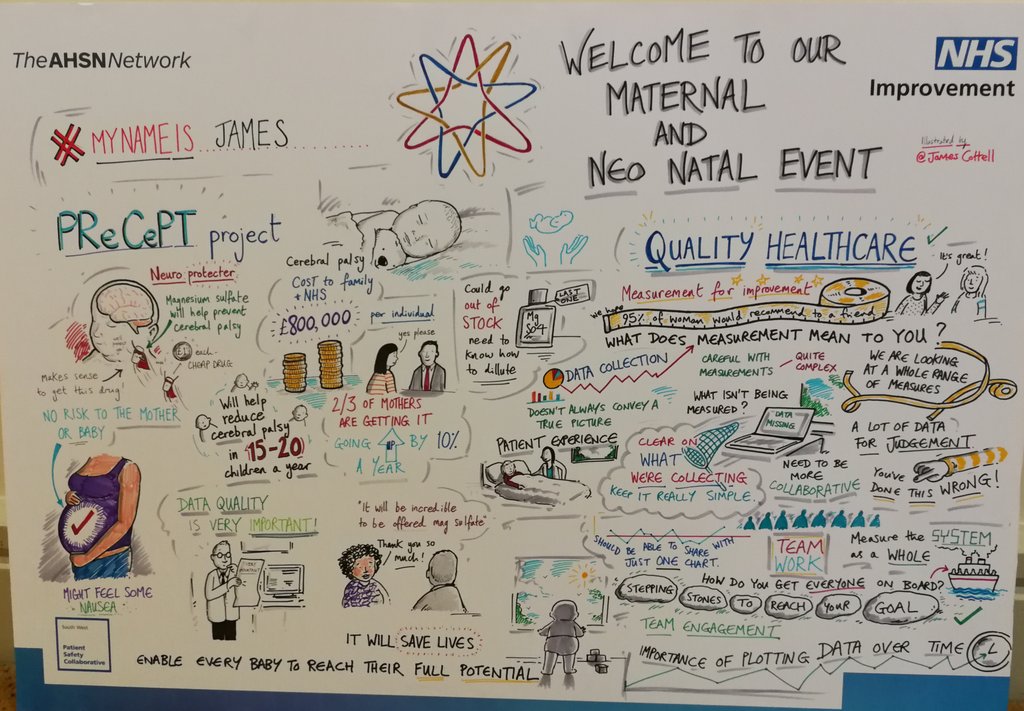 The AHSN Network
WELCOME TO OUR
MATERNAL
AND
NEO NATAL EVENT
NHS
Improvement
Illustrated by
@James Cottell
# MY NAME IS JAMES
PReCePT project
Neuro protecter
Magnesium sulfate
will help prevent
cerebral palsy
makes sense
to get this drug!
£1 each
CHEAP DRUG
NO RISK TO THE MOTHER
OR BABY
MIGHT FEEL SOME
NAUSEA
Cerebral palsy
COST TO family
+ NHS
£800,000
per individual
yes please
Will help
reduce
cerebral palsy
in 15-20
children a year
2/3 OF MOTHERS
ARE GETTING IT
GOING BY 10%
A YEAR
Could go
out of
STOCK
need to
know how
to dillute
LAST
ONE
Mg
SO4
DATA QUALITY
IS VERY IMPORTANT!
"It will be incredible
to be offered mag sulfate"
Thank you so
much!
IT WILL SAVE LIVES
ENABLE EVERY BABY TO REACH THEIR FULL POTENTIAL
South West
Patient
Safety
Collaborative
QUALITY HEALTHCARE
It's great!
Measurement for improvement
we hope
95% of woman would recommend to a friend
WHAT DOES MEASUREMENT MEAN TO YOU?
DATA COLLECTION
CAREFUL WITH
MEASUREMENTS
QUITE
COMPLEX
WE ARE LOOKING
AT A WHOLE RANGE
OF MEASURES
DOESN'T ALWAYS CONVEY A
TRUE PICTURE
WHAT ISN'T BEING
MEASURED?
DATA
MISSING
A LOT OF DATA
FOR JUDGEMENT
PATIENT EXPERIENCE
CLEAR ON
WHAT
WE'RE COLLECTING
KEEP IT REALLY SIMPLE.
NEED TO BE
MORE
COLLABORATIVE
YOU'VE
DONE THIS WRONG!
SHOULD BE ABLE TO SHARE WITH
JUST ONE CHART.
TEAM
WORK
Measure the SYSTEM
as a WHOLE
HOW DO YOU GET EVERYONE ON BOARD?
STEPPING STONES TO REACH YOUR GOAL
TEAM ENGAGEMENT
IMPORTANCE OF PLOTTING DATA OVER TIME